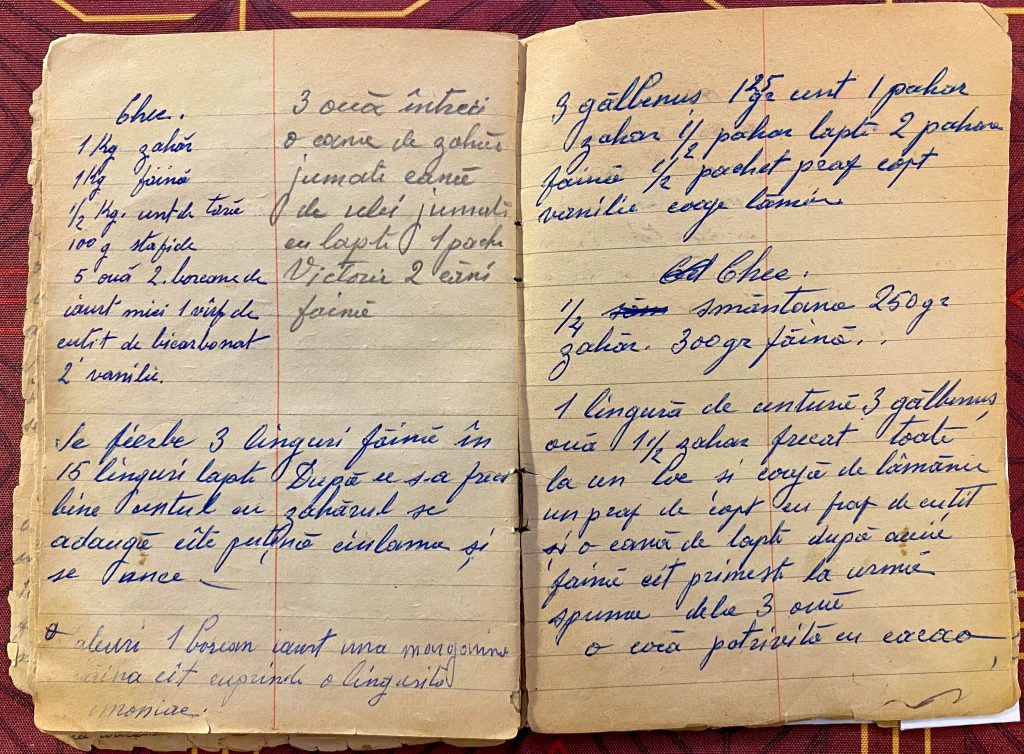 Chec.
1 Kg zahăr
1 Kg făină
1/2 Kg. unt de tară
100 g stafide
5 ouă 2. borcane de
iaurt mici 1 vîrf de
cutit de bicarbonat
2 vanilie.
3 ouă întreci
o cama de zahăr
jumati cană
de ulei jumati
cu lapti 1 pach
Victorie 2 căni
făină
Se fierbe 3 linguri făină în
15 linguri lapti După ce s-a frecat
bine untul cu zahărul se
adaugă cîte puțină ciulama și
se
1 borcan iaurt una margarina
cît cuprinde o linguriță
3 gălbenus 125 gr unt 1 pahar
zahar 1/2 pahar lapte 2 pahare
făină 1/2 pachet praf copt
vanilie coaje lămîie
Chec.
1/4 smântana 250 gr
zahăr. 300 gr făină..
1 lingură de untură 3 gălbenuș
ouă 1 1/2 zahar frecat toate
la un loc si coajă de lămânie
un praf de copt cu praf de cutit
și o cană de lapte după aceia
faină cit primesti la urmă
spuma dela 3 ouă
o cocă potrivită cu cacao